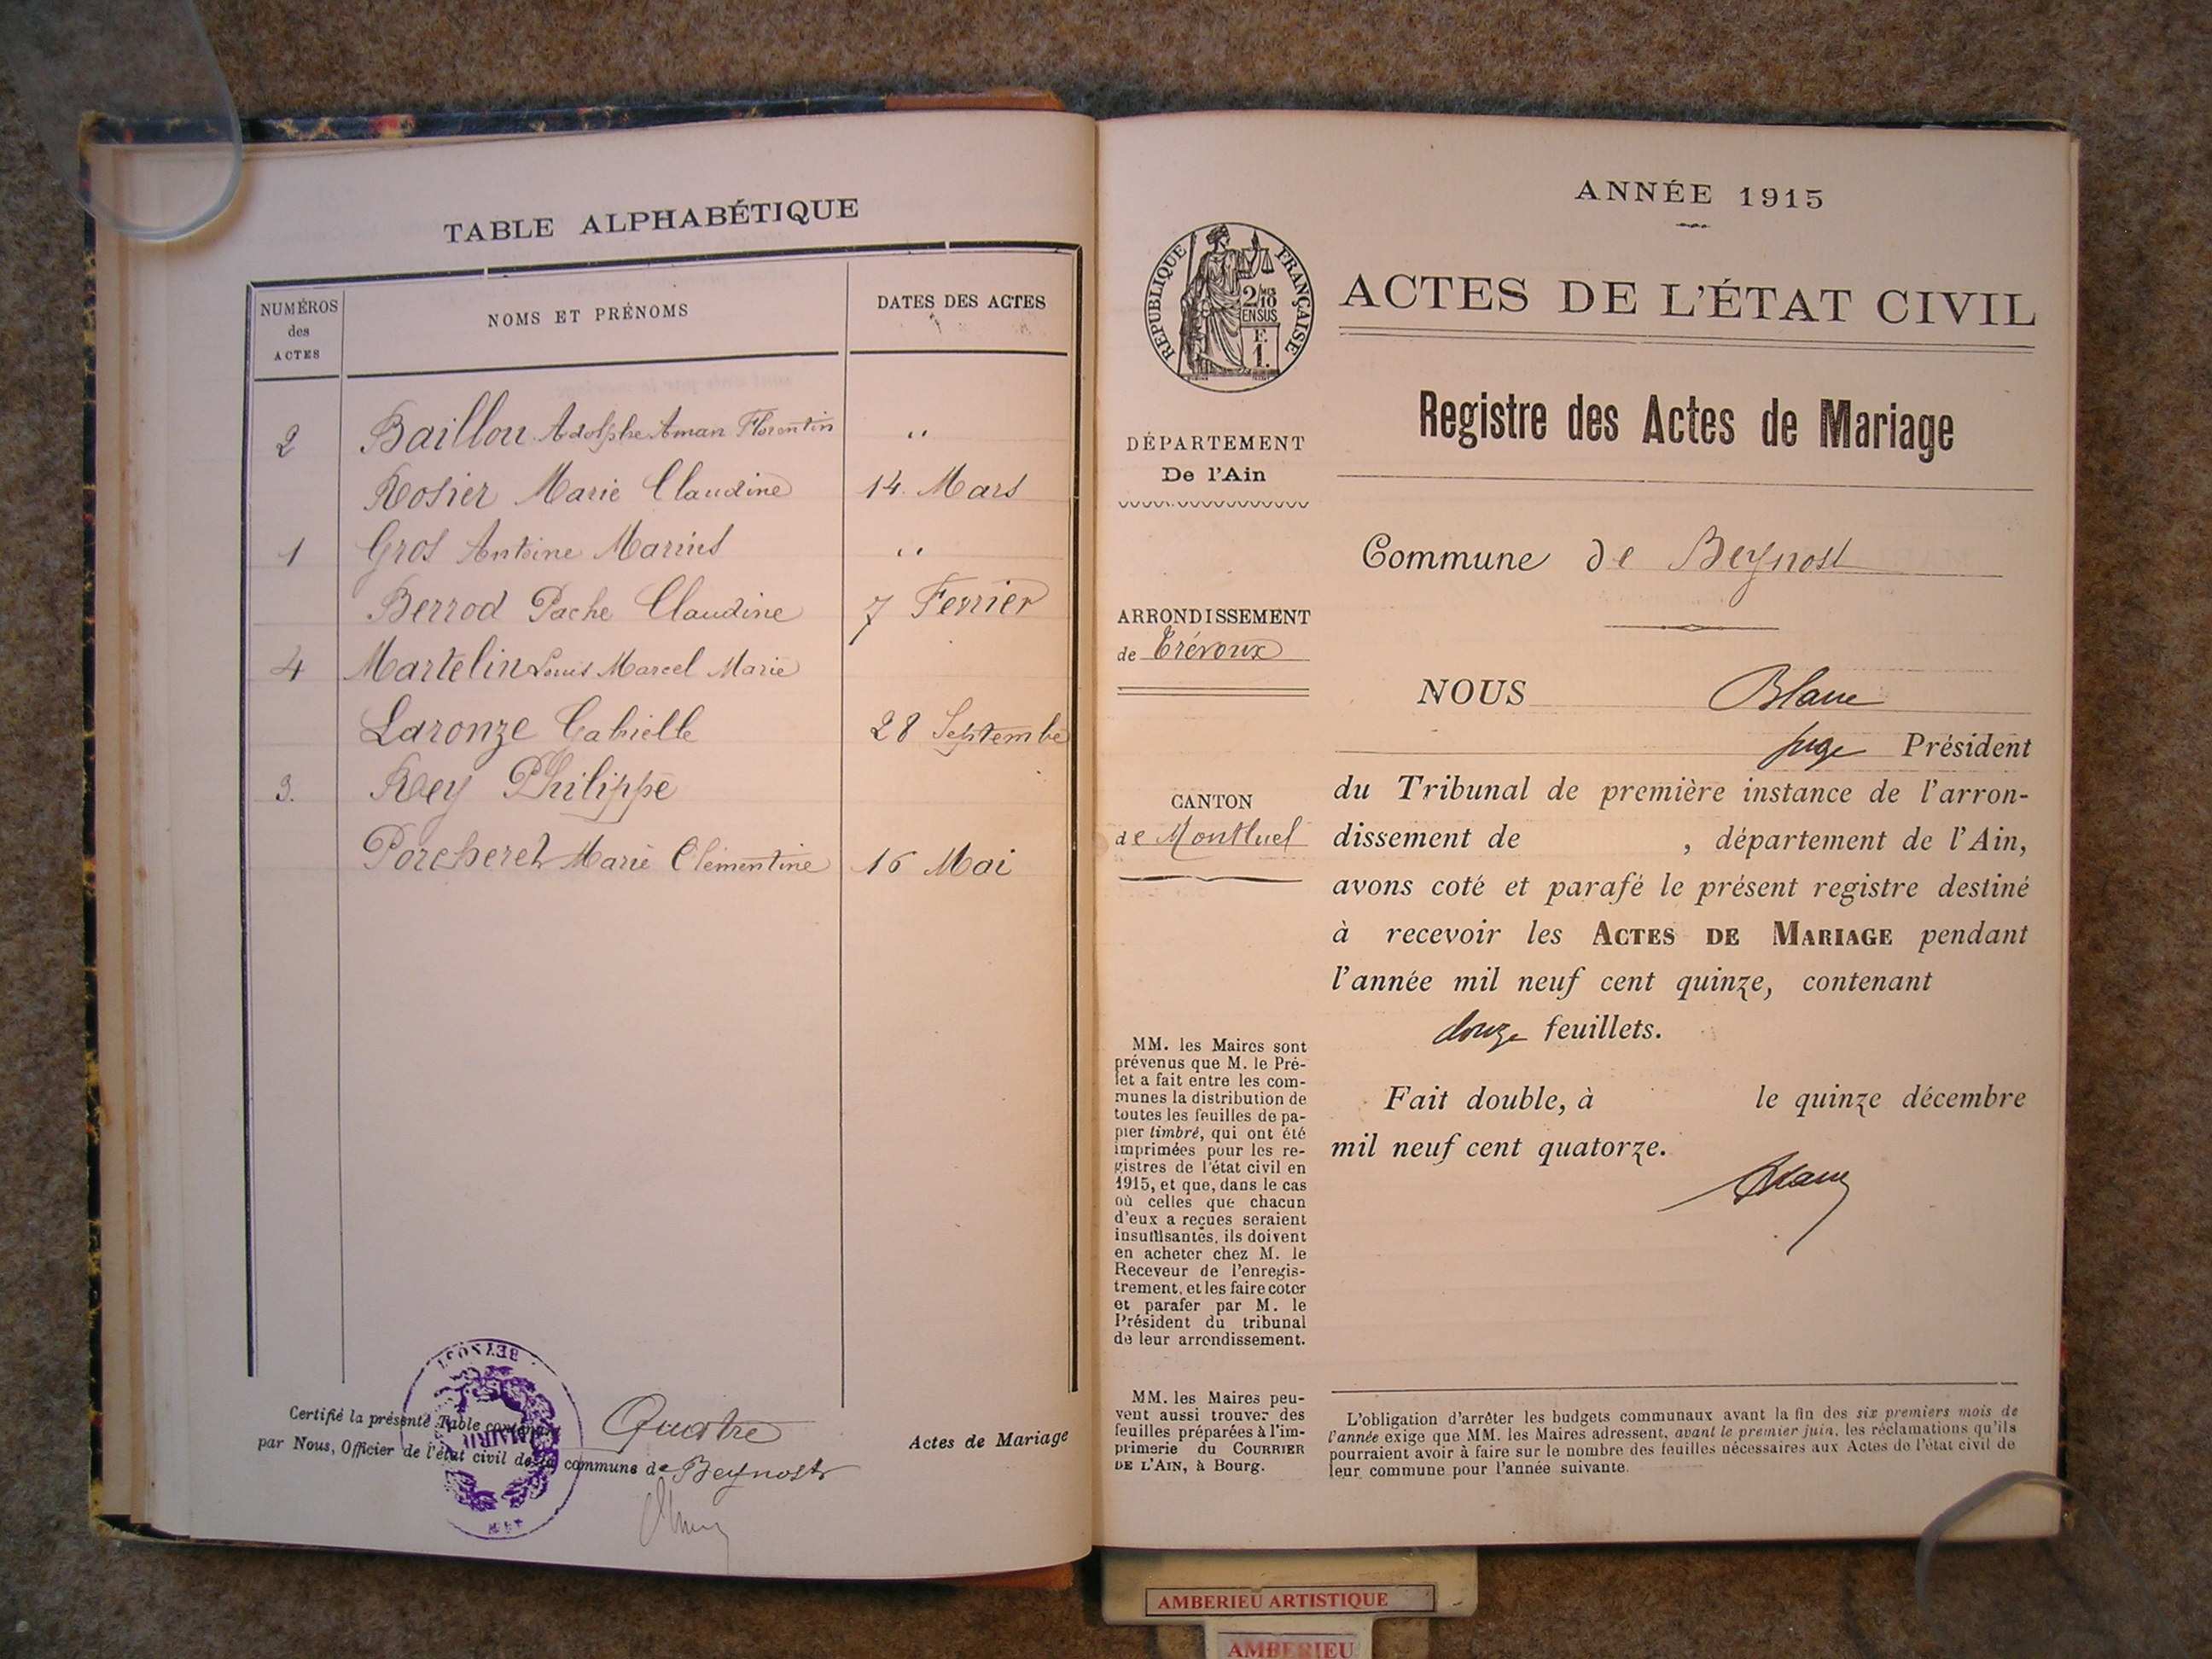 TABLE ALPHABÉTIQUE
NUMÉROS
des
ACTES
NOMS ET PRÉNOMS
DATES DES ACTES
2 Baillou Adolphe Aman Florentin "
Rosier Marie Claudine 14 Mars
1 Gros Antoine Marius "
Berrod Pache Claudine 7 Fevrier
4 Martelin Louis Marcel Marie
Laronze Gabrielle 28 Septembe
3. Rey Philippe
Porcheret Marie Clémentine 16 Mai
Certifié la présente Table contenant Quatre Actes de Mariage
par Nous, Officier de l'état civil de la commune de Beynost
BEYNOST
MAIRIE
ANNÉE 1915
RÉPUBLIQUE FRANÇAISE
2/10
EN SUS
F.
1.
ACTES DE L'ÉTAT CIVIL
Registre des Actes de Mariage
DÉPARTEMENT
De l'Ain
Commune de Beynost
ARRONDISSEMENT
de Trévoux
CANTON
de Montluel
NOUS Blanc
Juge Président
du Tribunal de première instance de l'arron-
dissement de , département de l'Ain,
avons coté et parafé le présent registre destiné
à recevoir les ACTES DE MARIAGE pendant
l'année mil neuf cent quinze, contenant
douze feuillets.
Fait double, à le quinze décembre
mil neuf cent quatorze.
MM. les Maires sont
prévenus que M. le Pré-
fet a fait entre les com-
munes la distribution de
toutes les feuilles de pa-
pier timbré, qui ont été
imprimées pour les re-
gistres de l'état civil en
1915, et que, dans le cas
où celles que chacun
d'eux a reçues seraient
insuffisantes, ils doivent
en acheter chez M. le
Receveur de l'enregis-
trement, et les faire coter
et parafer par M. le
Président du tribunal
de leur arrondissement.
MM. les Maires peu-
vent aussi trouver des
feuilles préparées à l'im-
primerie du COURRIER
DE L'AIN, à Bourg.
L'obligation d'arrêter les budgets communaux avant la fin des six premiers mois de
l'année exige que MM. les Maires adressent, avant le premier juin, les réclamations qu'ils
pourraient avoir à faire sur le nombre des feuilles nécessaires aux Actes de l'état civil de
leur commune pour l'année suivante.
AMBERIEU ARTISTIQUE
AMBERIEU